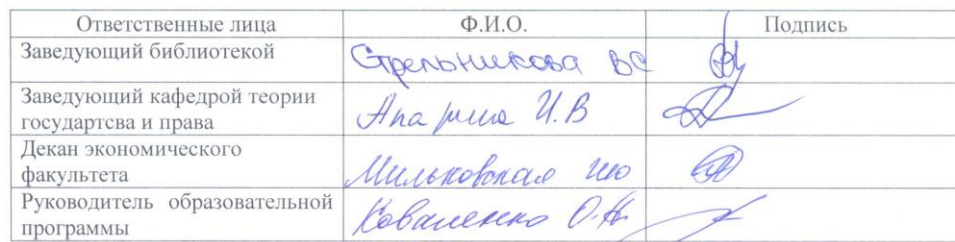 Ответственные лица Ф.И.О. Подпись
Заведующий библиотекой Стрельникова ВС
Заведующий кафедрой теории
государтсва и права И.В
Декан экономического
факультета Мильковская
Руководитель образовательной
программы Коваленко О.Н.